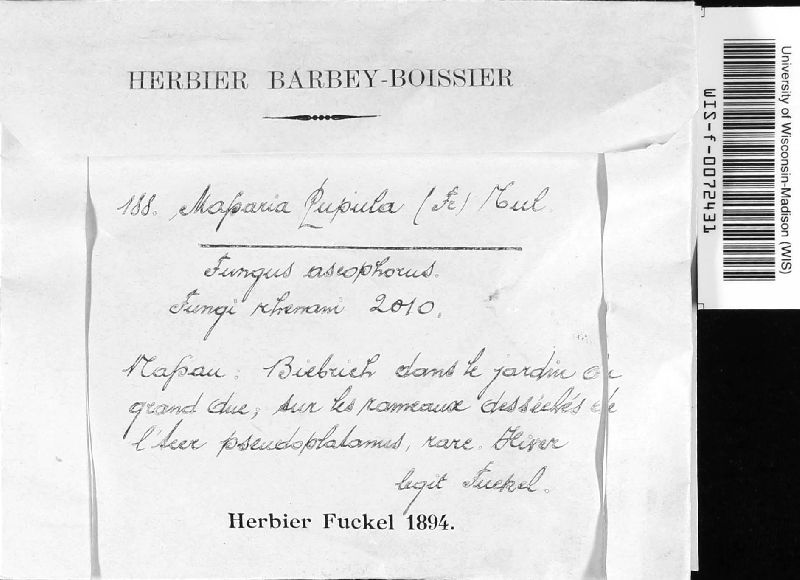 HERBIER BARBEY-BOISSIER
188. Massaria Pupula (Fr) Tul.
Fungus ascophorus.
Fungi rhenani 2010.
Nassau: Biebrich dans le jardin du
grand duc, sur les rameaux desséchés de
l'Acer pseudoplatanus, rare. Hiver
legit Fuckel.
Herbier Fuckel 1894.
University of Wisconsin-Madison (WIS)
WIS-f-0072431